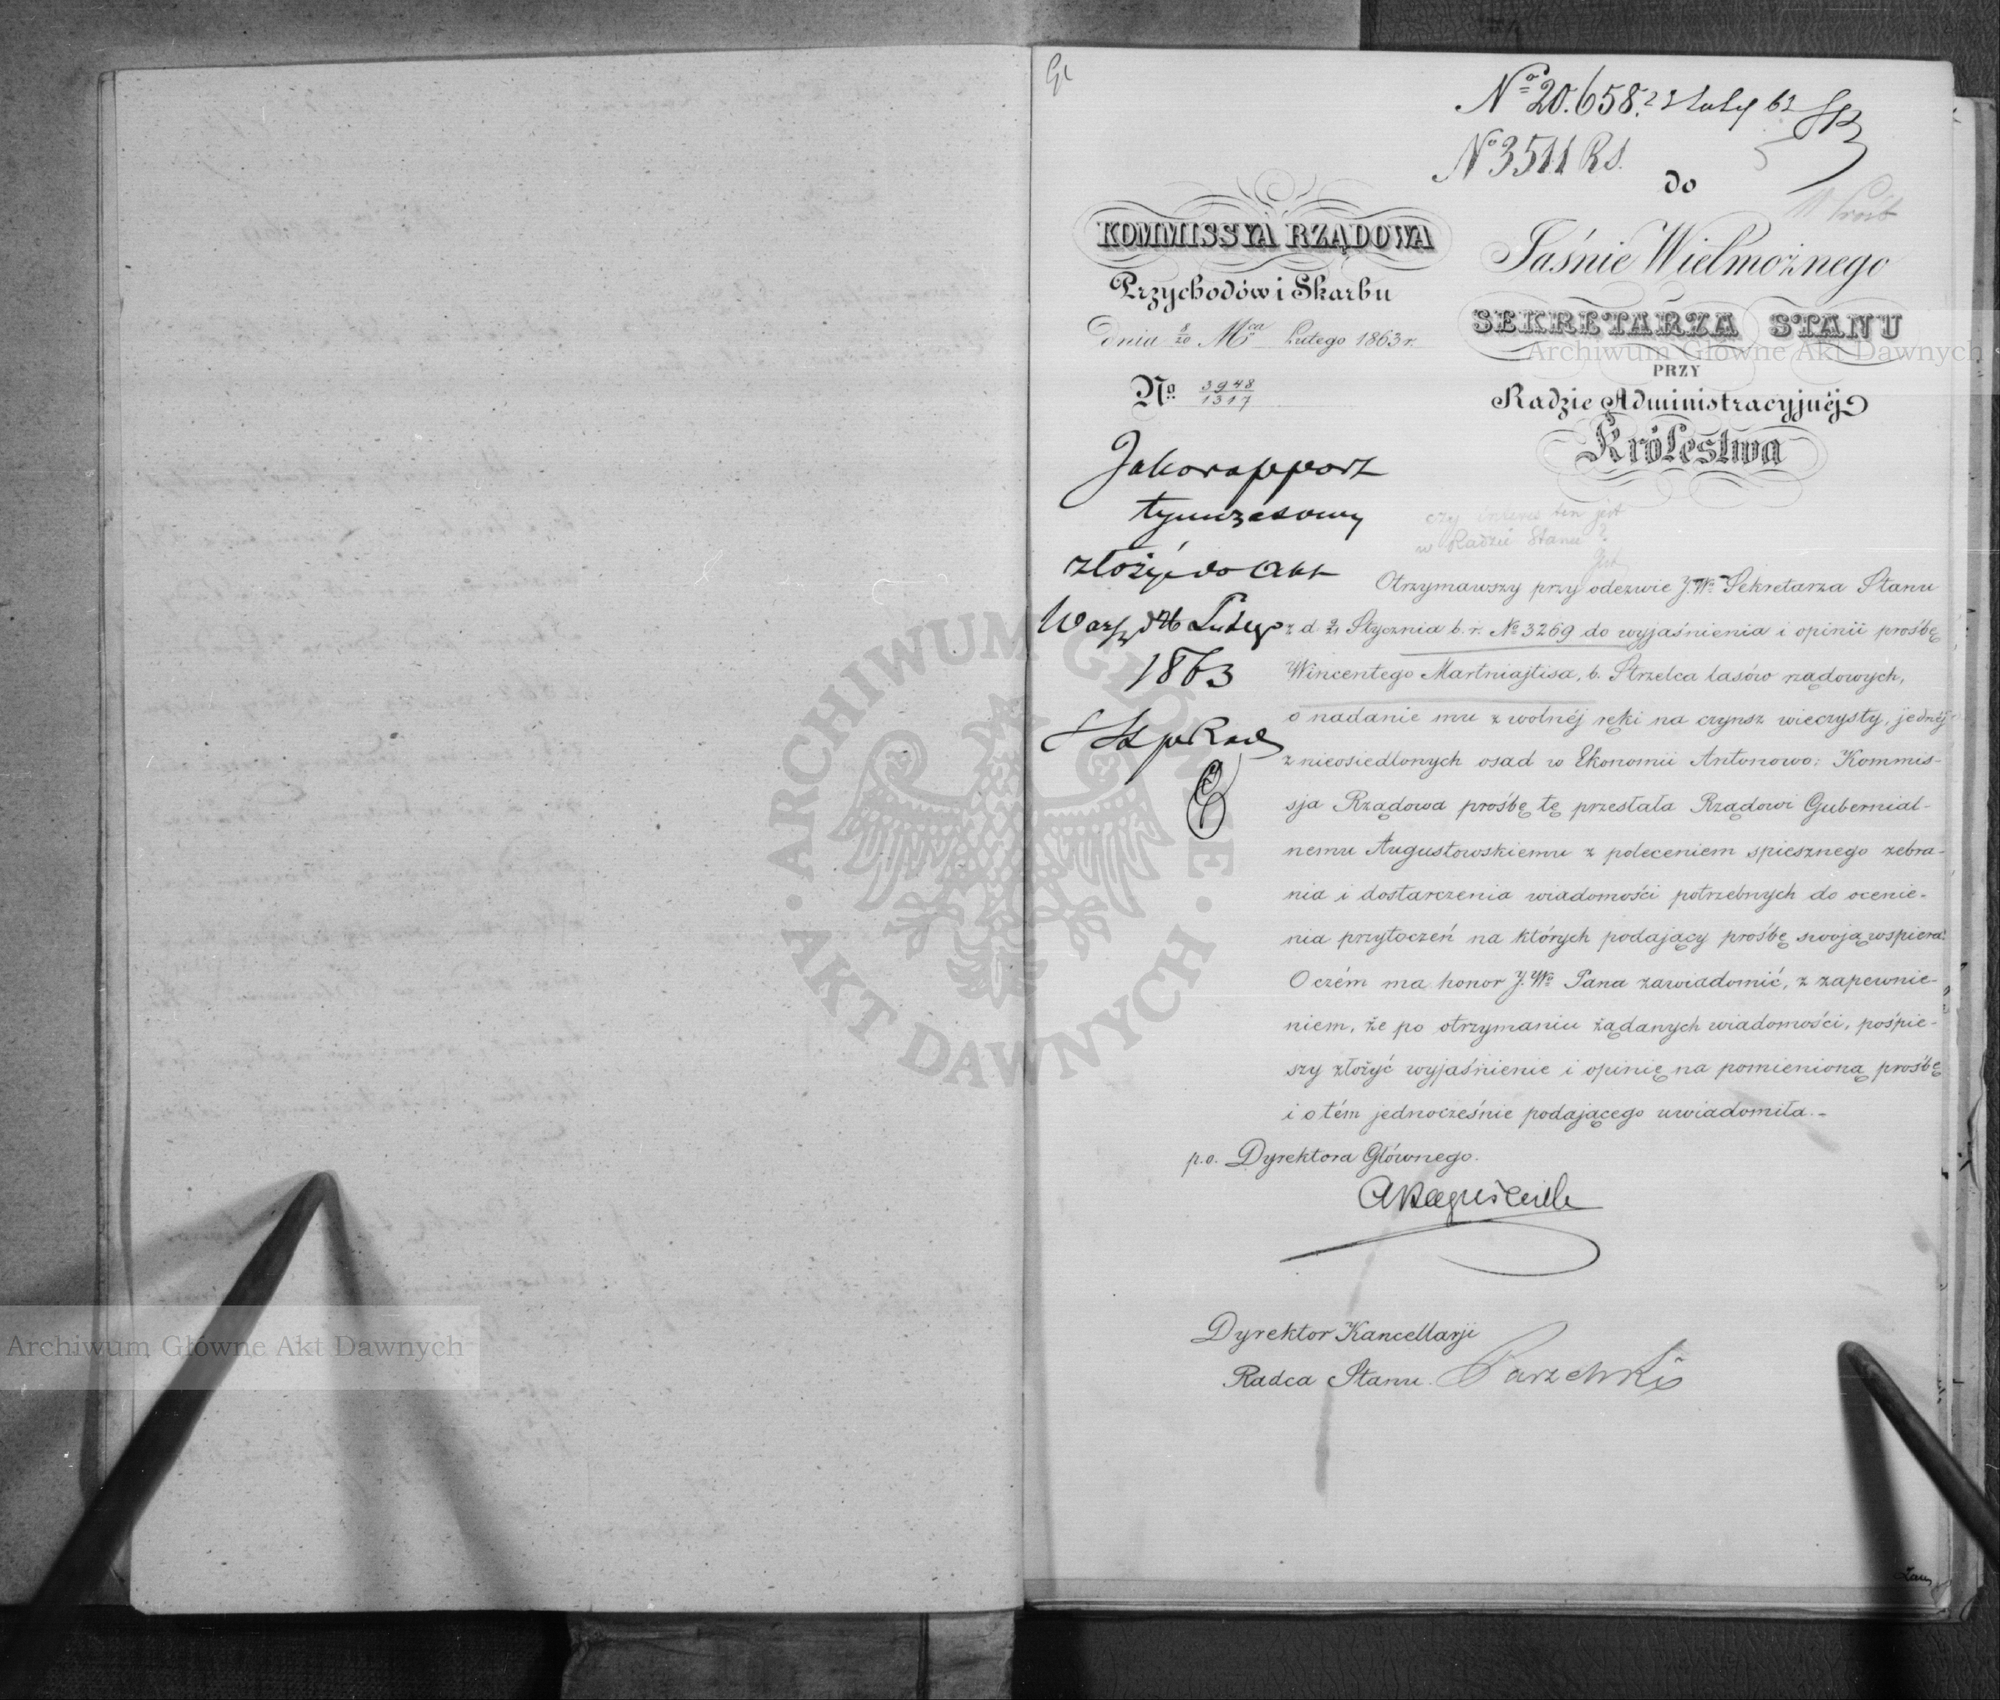 № 20.658. 22 luty 63
№ 3511 R S.
do
Jaśnie Wielmożnego
SEKRETARZA STANU
PRZY
Radzie Administracyjnéj
Królestwa
KOMMISSYA RZĄDOWA
Przychodów i Skarbu
dnia 8/20 Mca Lutego 1863 r.
No. 3948/1317
Jako rapport
tymczasowy
złożyć do Akt
Warsz d 26 Lutego
1863
czy interes ten jest
w Radzie Stanu?
Jest
Otrzymawszy przy odezwie J.Wo Sekretarza Stanu
z d. 9/21 Stycznia b. r. № 3269 do wyjaśnienia i opinii prośbę
Wincentego Martniajtisa, b. Strzelca lasów rządowych,
o nadanie mu z wolnéj ręki na czynsz wieczysty, jednéj
z nieosiedlonych osad w Ekonomii Antonowo; Kommis-
sja Rządowa prośbę tę przesłała Rządowi Gubernial-
nemu Augustowskiemu z poleceniem spiesznego zebra-
nia i dostarczenia wiadomości potrzebnych do ocenie-
nia przytoczeń na których podający prośbę swoją wspiera.
O czém ma honor J.Wo Pana zawiadomić, z zapewnie-
niem, że po otrzymaniu żądanych wiadomości, pośpie-
szy złożyć wyjaśnienie i opinię na pomienioną prośbę
i o tém jednocześnie podającego uwiadomiła.-
p.o. Dyrektora Głównego.
Dyrektor Kancellarji
Radca Stanu.
Archiwum Główne Akt Dawnych
Archiwum Główne Akt Dawnych
ARCHIWUM GŁÓWNE · AKT DAWNYCH ·